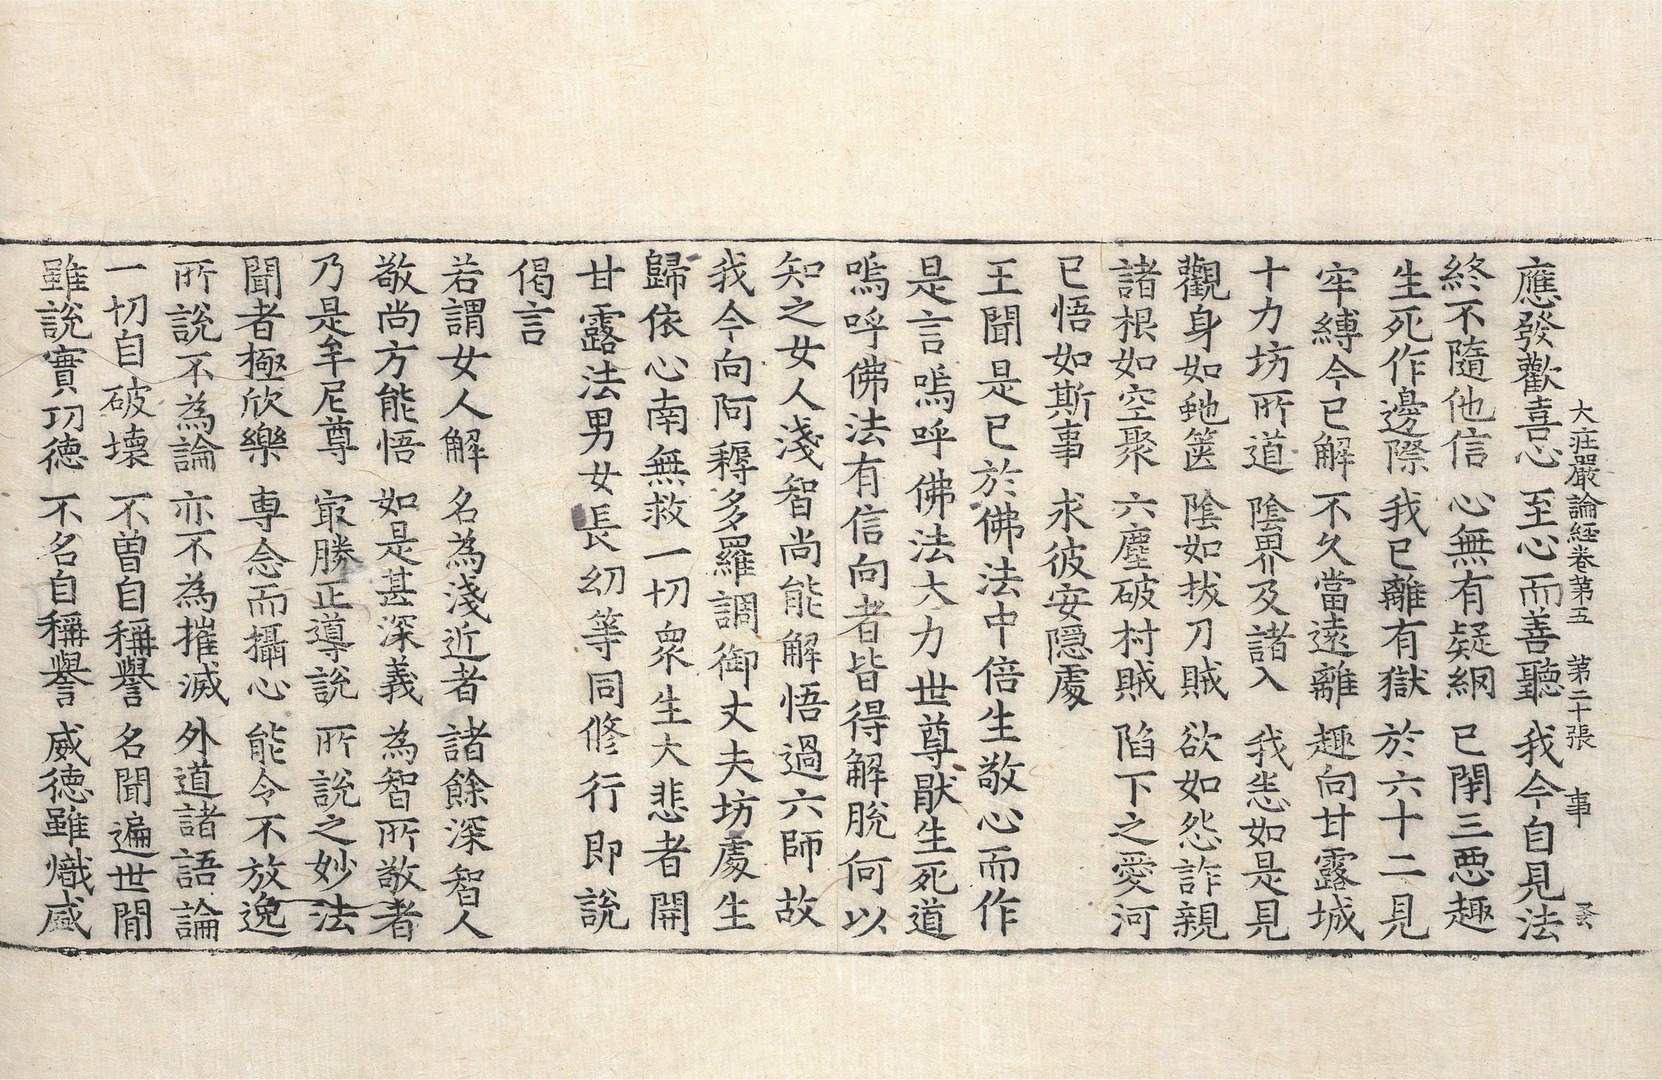 大莊嚴論經卷第五 第二十張 事
應發歡喜心 至心而善聽 我今自見法
終不隨他信 心無有疑網 已閇三惡趣
生死作邊際 我已離有獄 於六十二見
牢縛今已解 不久當遠離 趣向甘露城
十力坊所道 陰界及諸入 我恙如是見
觀身如虵篋 陰如拔刀賊 欲如怨詐親
諸根如空聚 六塵破村賊 陷下之愛河
已悟如斯事 求彼安隱處
王聞是已於佛法中倍生敬心而作
是言嗚呼佛法大力世尊猒生死道
嗚呼佛法有信向者皆得解脫何以
知之女人淺智尚能解悟過六師故
我今向阿耨多羅調御丈夫坊處生
歸依心南無救一切衆生大悲者開
甘露法男女長幼等同修行即說
偈言
若謂女人解 名為淺近者 諸餘深智人
敬尚方能悟 如是甚深義 為智所敬者
乃是牟尼尊 㝡勝正導說 所說之妙法
聞者極欣樂 專念而攝心 能令不放逸
所說不為論 亦不為摧滅 外道諸語論
一切自破壞 不曽自稱譽 名聞遍世間
雖說實功徳 不名自稱譽 威徳雖熾盛